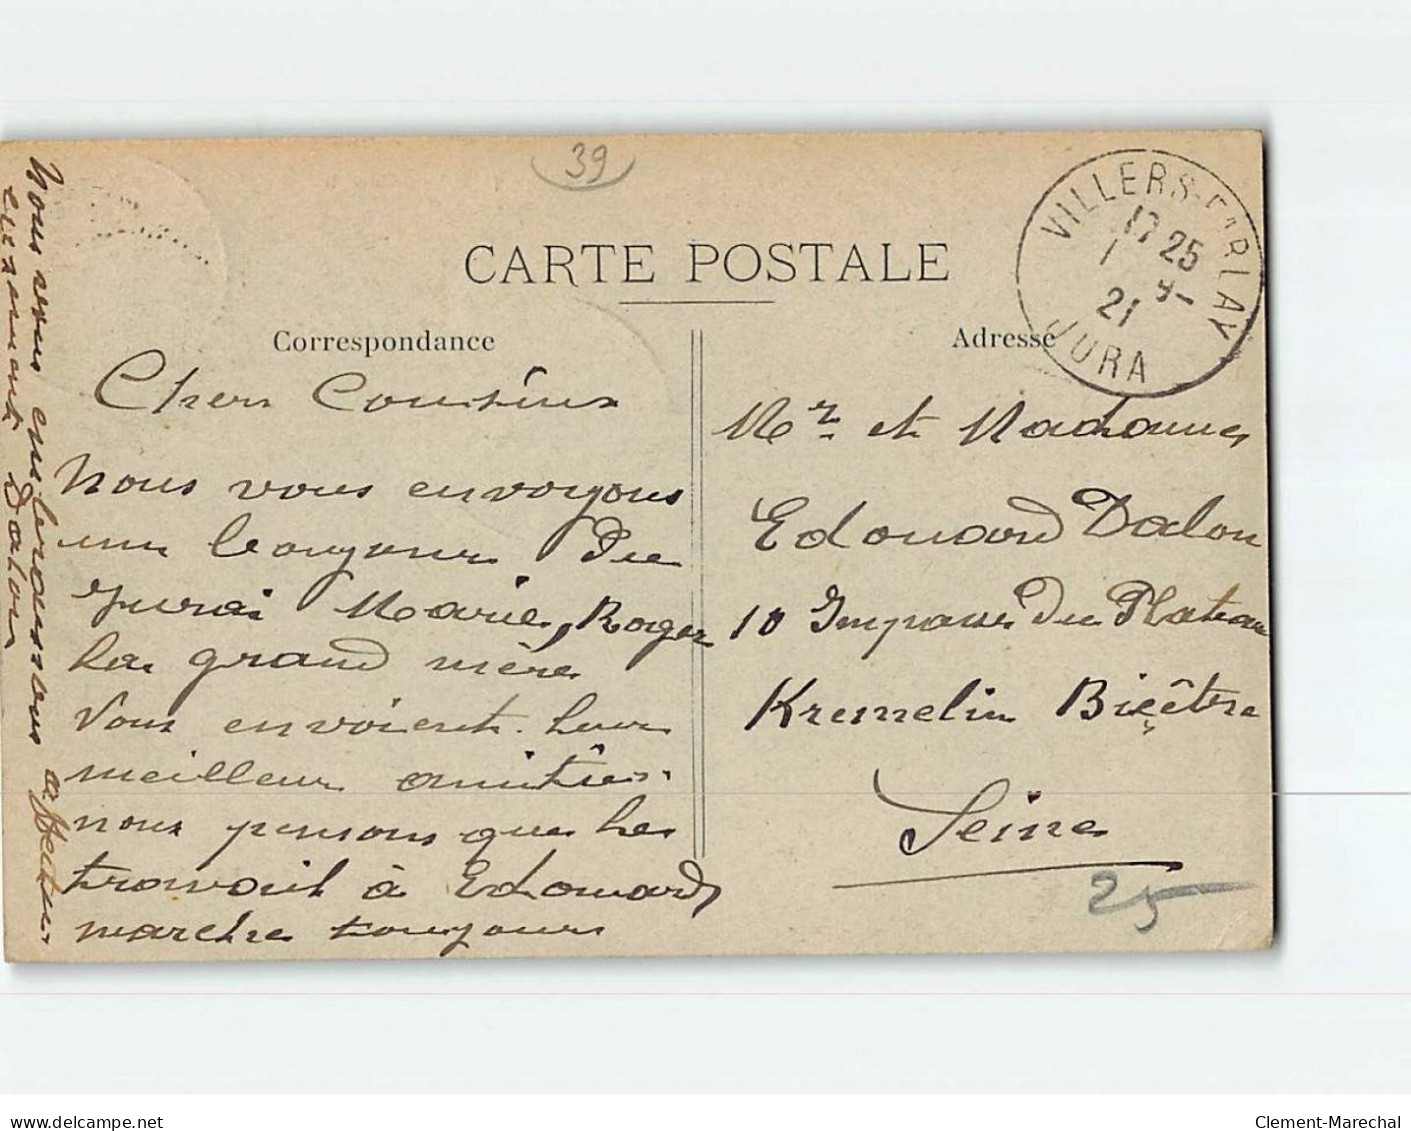 39
CARTE POSTALE
Correspondance
Adresse
VILLERS-FARLAY
17 25
1 9-
21
JURA
Chers Cousins
Nous vous envoyons
un bonjour du
Jura Marie, Roger
la grand mère
vous envoient leur
meilleur amitiés.
nous pensons que le
travail à Edouard
marche toujours
Nous vous embrassons affectu
eusement Dalou
Mr. et Madame
Edouard Dalou
10 Impasse du Plateau
Kremelin Bicêtre
Seine
25
www.delcampe.net
Clement-Marechal